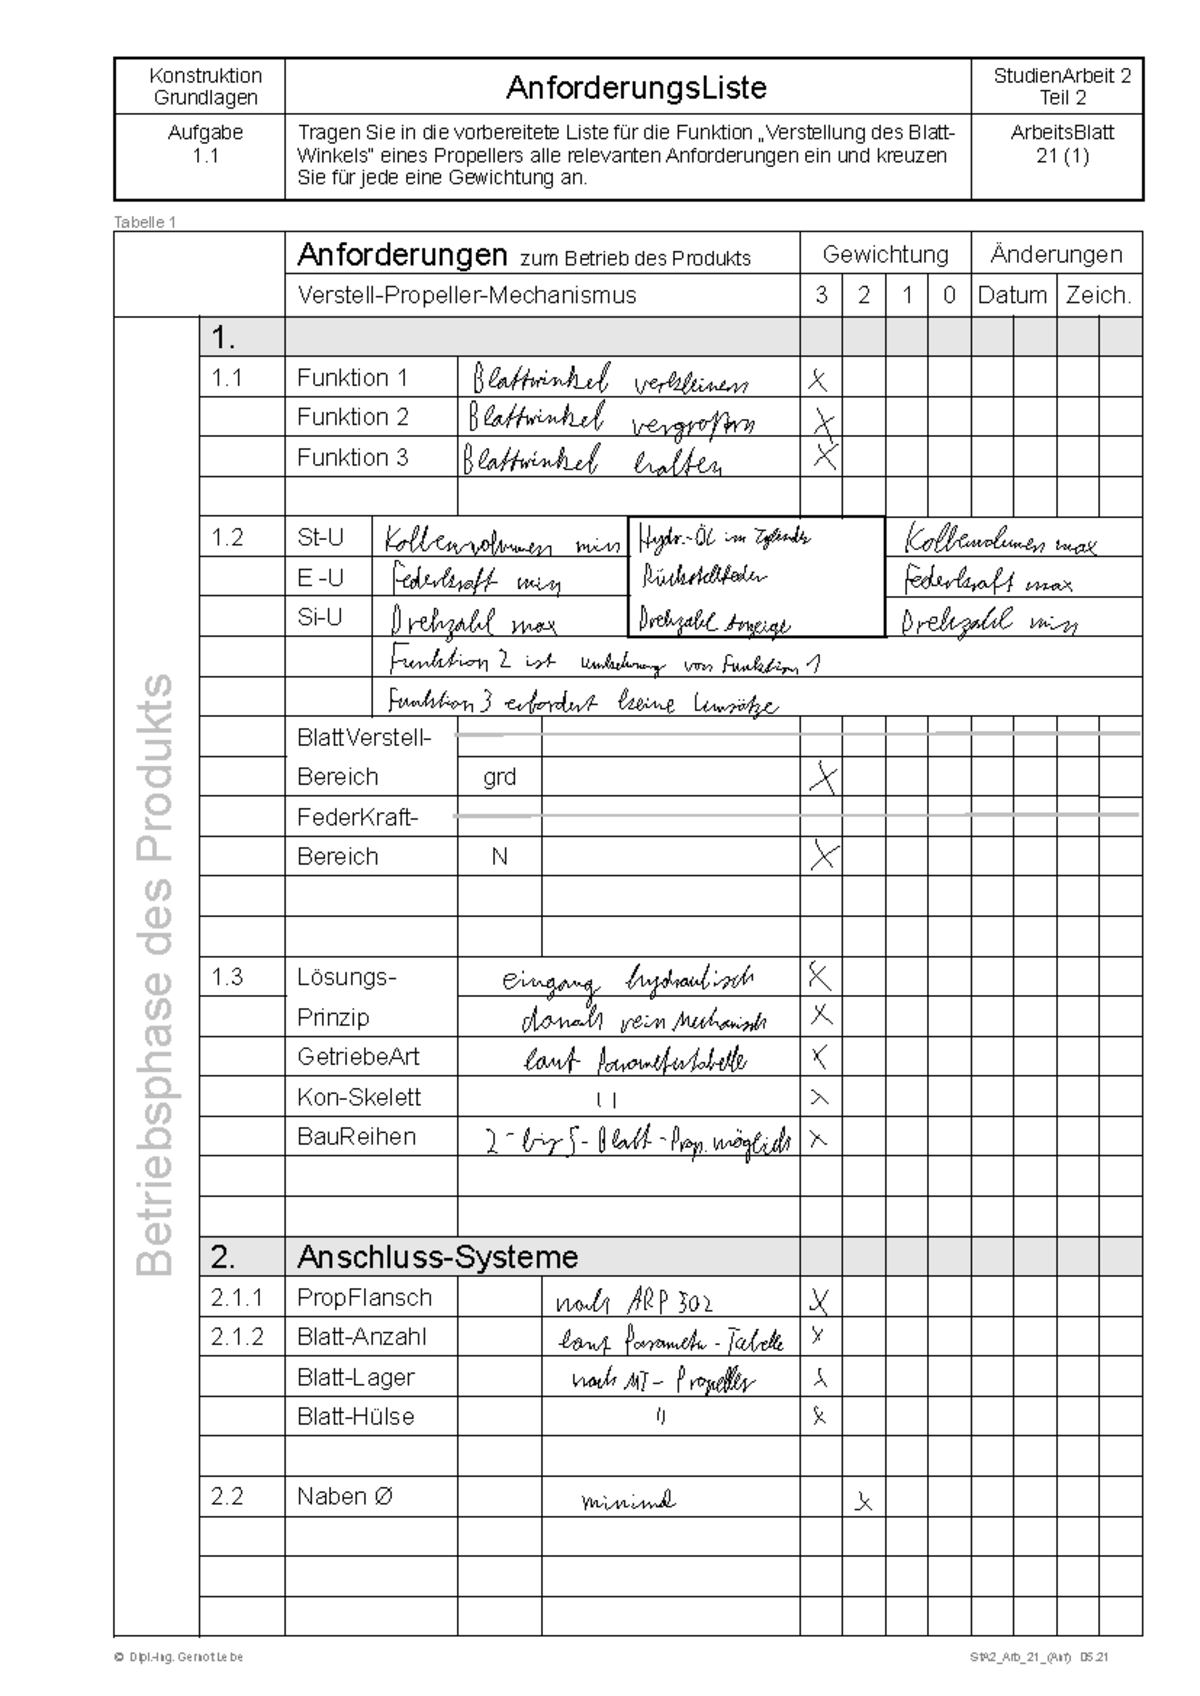 Konstruktion
Grundlagen
AnforderungsListe
StudienArbeit 2
Teil 2
Aufgabe
1.1
Tragen Sie in die vorbereitete Liste für die Funktion „Verstellung des Blatt-
Winkels" eines Propellers alle relevanten Anforderungen ein und kreuzen
Sie für jede eine Gewichtung an.
ArbeitsBlatt
21 (1)
Tabelle 1
Anforderungen zum Betrieb des Produkts
Gewichtung
Änderungen
Verstell-Propeller-Mechanismus 3 2 1 0 Datum Zeich.
Betriebsphase des Produkts
1.
1.1 Funktion 1 Blattwinkel verkleinern X
Funktion 2 Blattwinkel vergroßern X
Funktion 3 Blattwinkel halten X
1.2 St-U Kolbenvolumen min Hydr.-Öl im Zylinder Kolbenvolumen max
E -U Federkraft min Rückstellfeder Federkraft max
Si-U Drehzahl max Drehzahl Anzeige Drehzahl min
Funktion 2 ist Umkehrung von Funktion 1
Funktion 3 erfordert keine Umsätze
BlattVerstell-
Bereich grd X
FederKraft-
Bereich N X
1.3 Lösungs- eingang hydraulisch X
Prinzip danach rein mechanisch X
GetriebeArt laut Parametertabelle X
Kon-Skelett " X
BauReihen 2- bis 5- Blatt-Prop. möglich X
2. Anschluss-Systeme
2.1.1 PropFlansch nach ARP 502 X
2.1.2 Blatt-Anzahl laut Parameter-Tabelle X
Blatt-Lager nach MT-Propeller X
Blatt-Hülse " X
2.2 Naben Ø minimal X
© Dipl.-Ing. Gernot Lebe
StA2_Arb_21_(Anf) 05.21